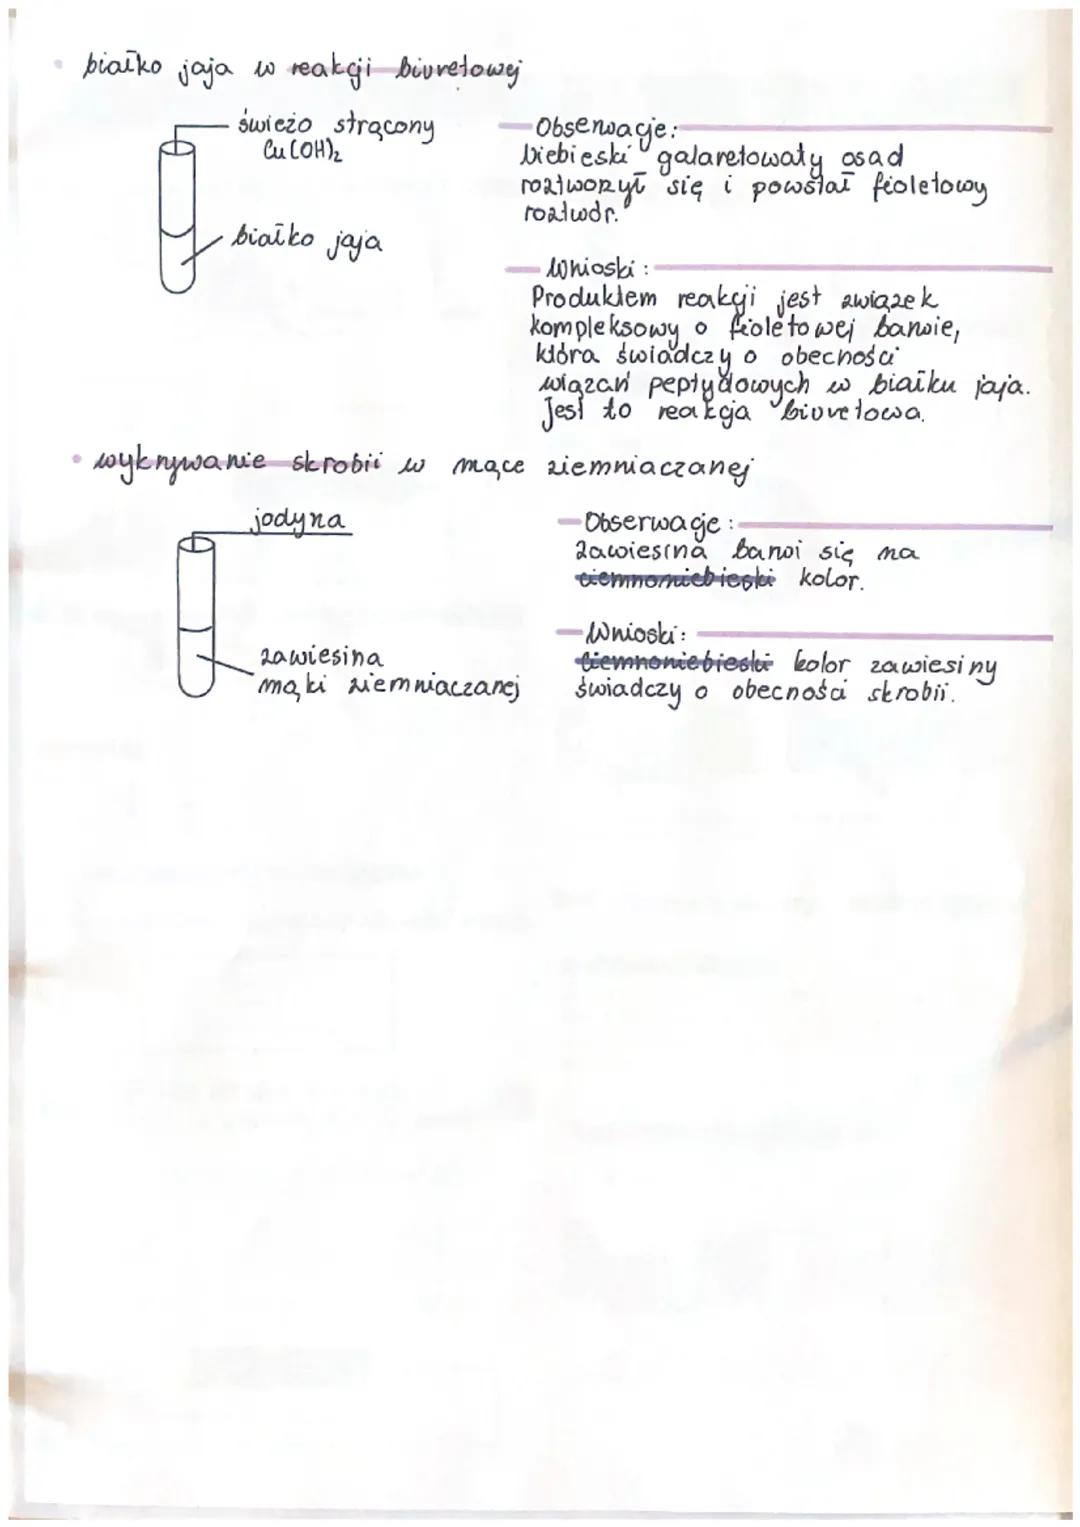 białko jaja w reakcji biuretowej
świeżo strącony
Cu(OH)₂
białko jaja
Obserwacje:
Niebieski galaretowaty osad
roztworzył się i powstał fioletowy
roztwór.
Wnioski:
Produktem reakcji jest związek
kompleksowy o fioletowej barwie,
która świadczy o obecności
wiązań peptydowych w białku jaja.
Jest to reakcja biuretowa.
wykrywanie skrobii w mące ziemniaczanej
jodyna
zawiesina
mąki ziemniaczanej
Obserwacje:
zawiesina barwi się na
ciemnoniebieski kolor.
Wnioski:
Ciemnoniebieski kolor zawiesiny
świadczy o obecności skrobii.